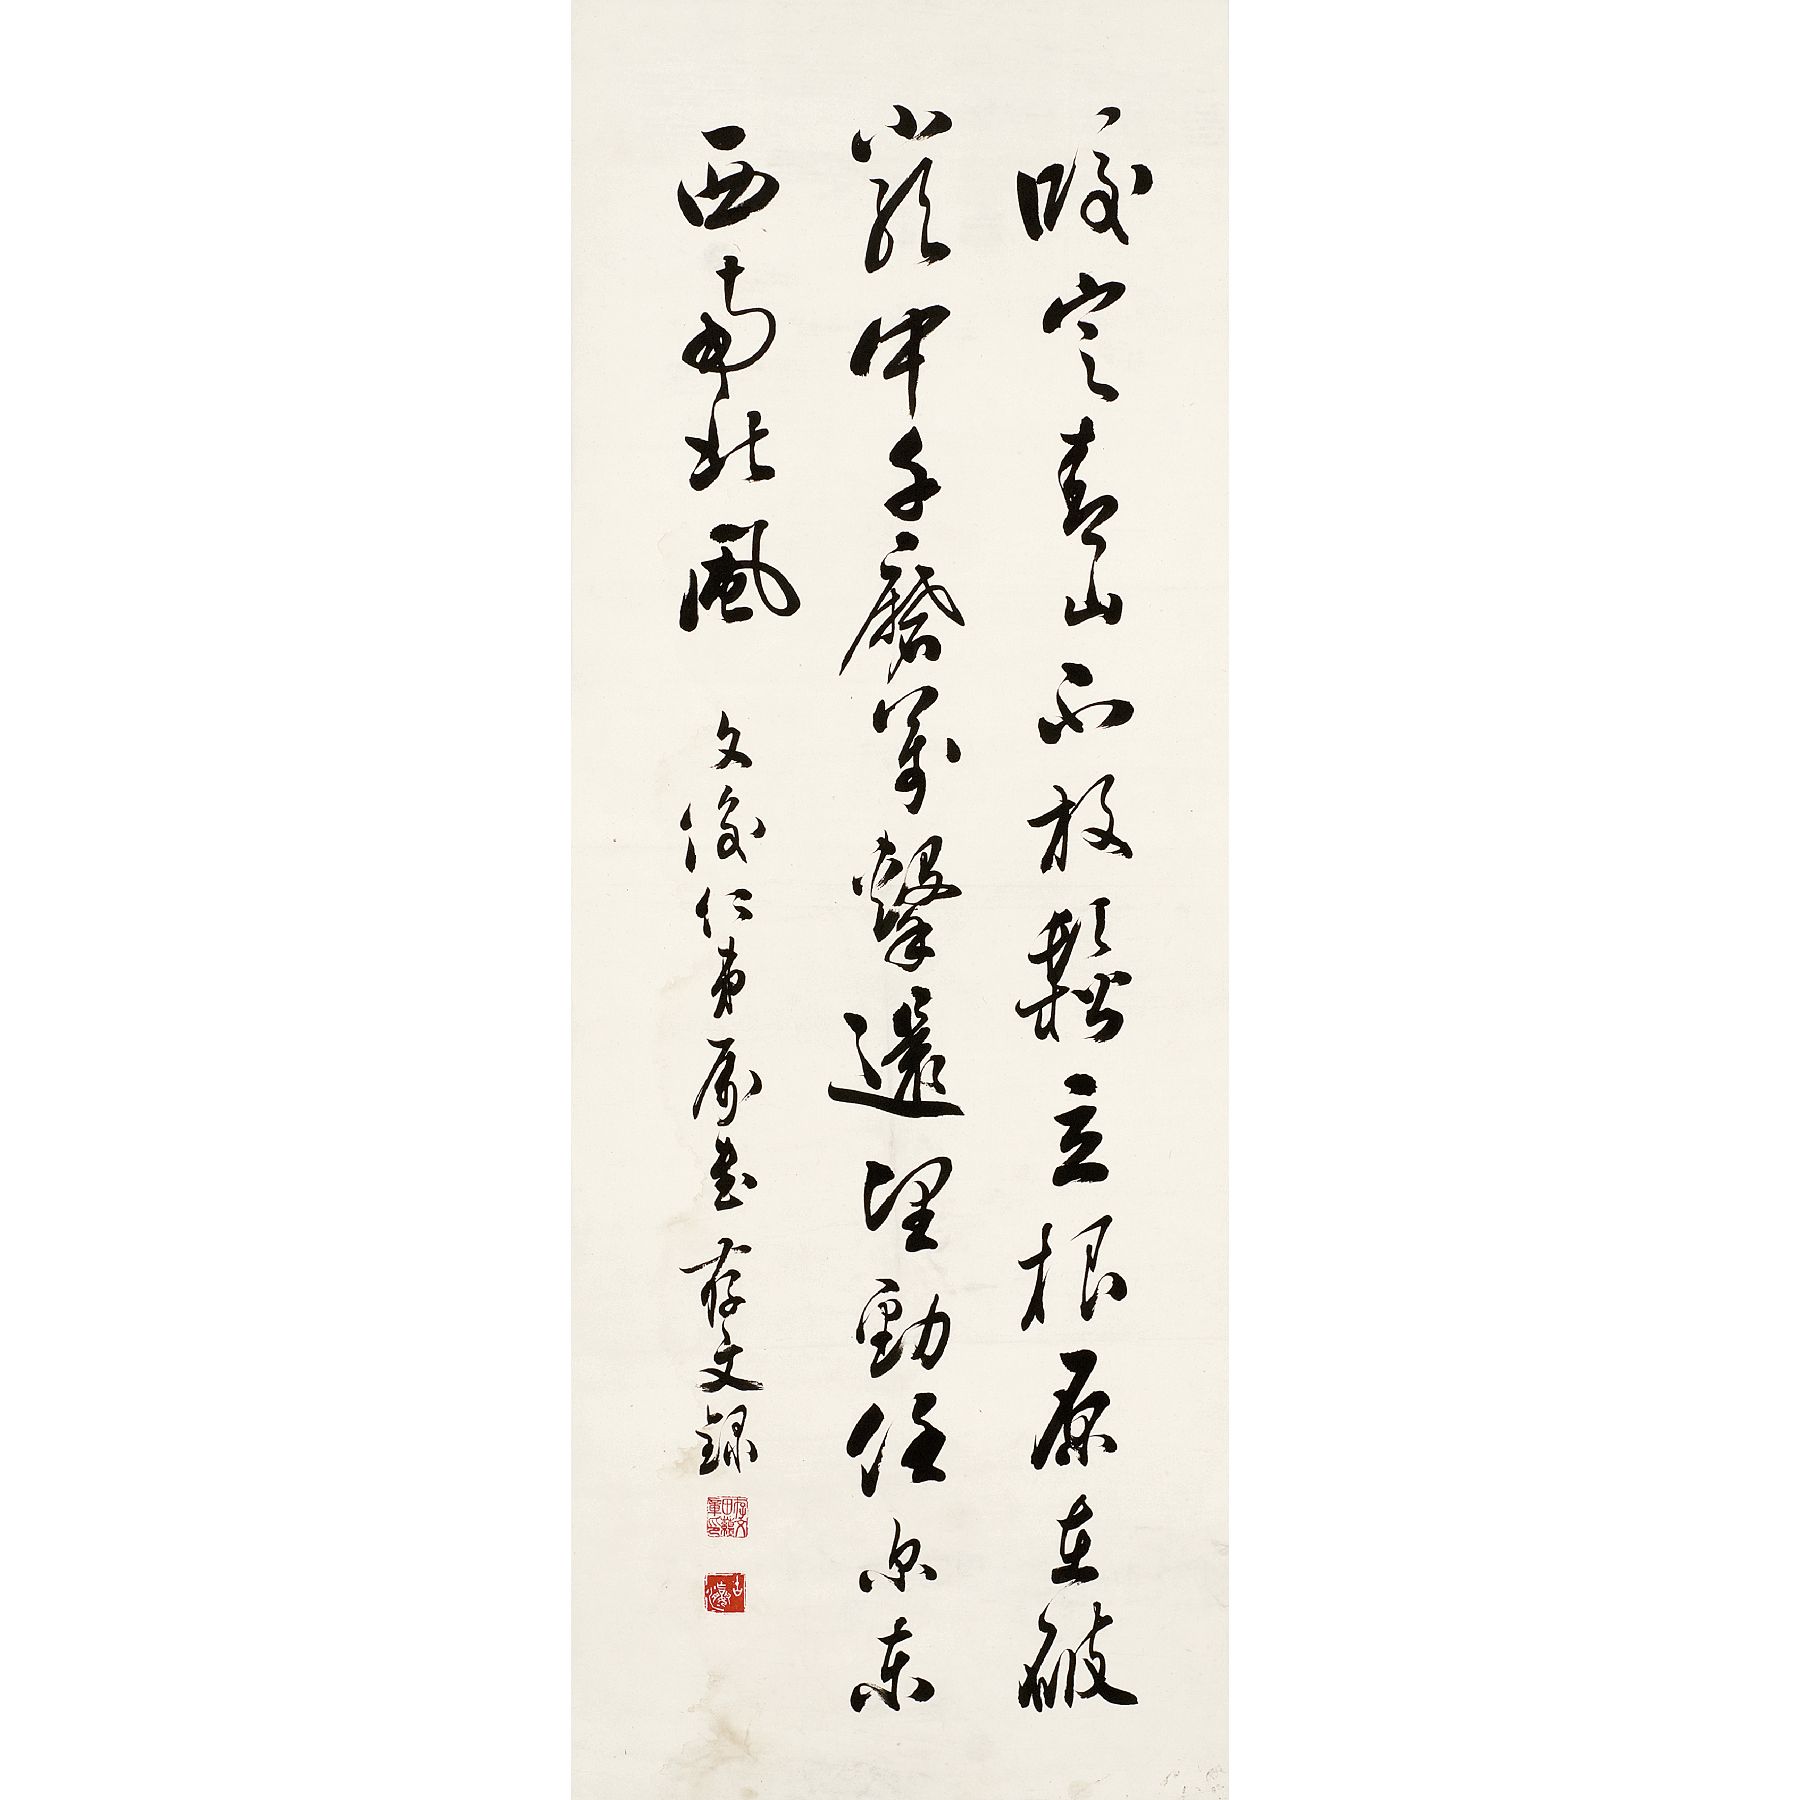 咬定青山不放鬆立根原在破
巖中千磨萬擊還堅勁任尔東
西南北風
文俊仁弟屬書存文錄
存文田蘊章印